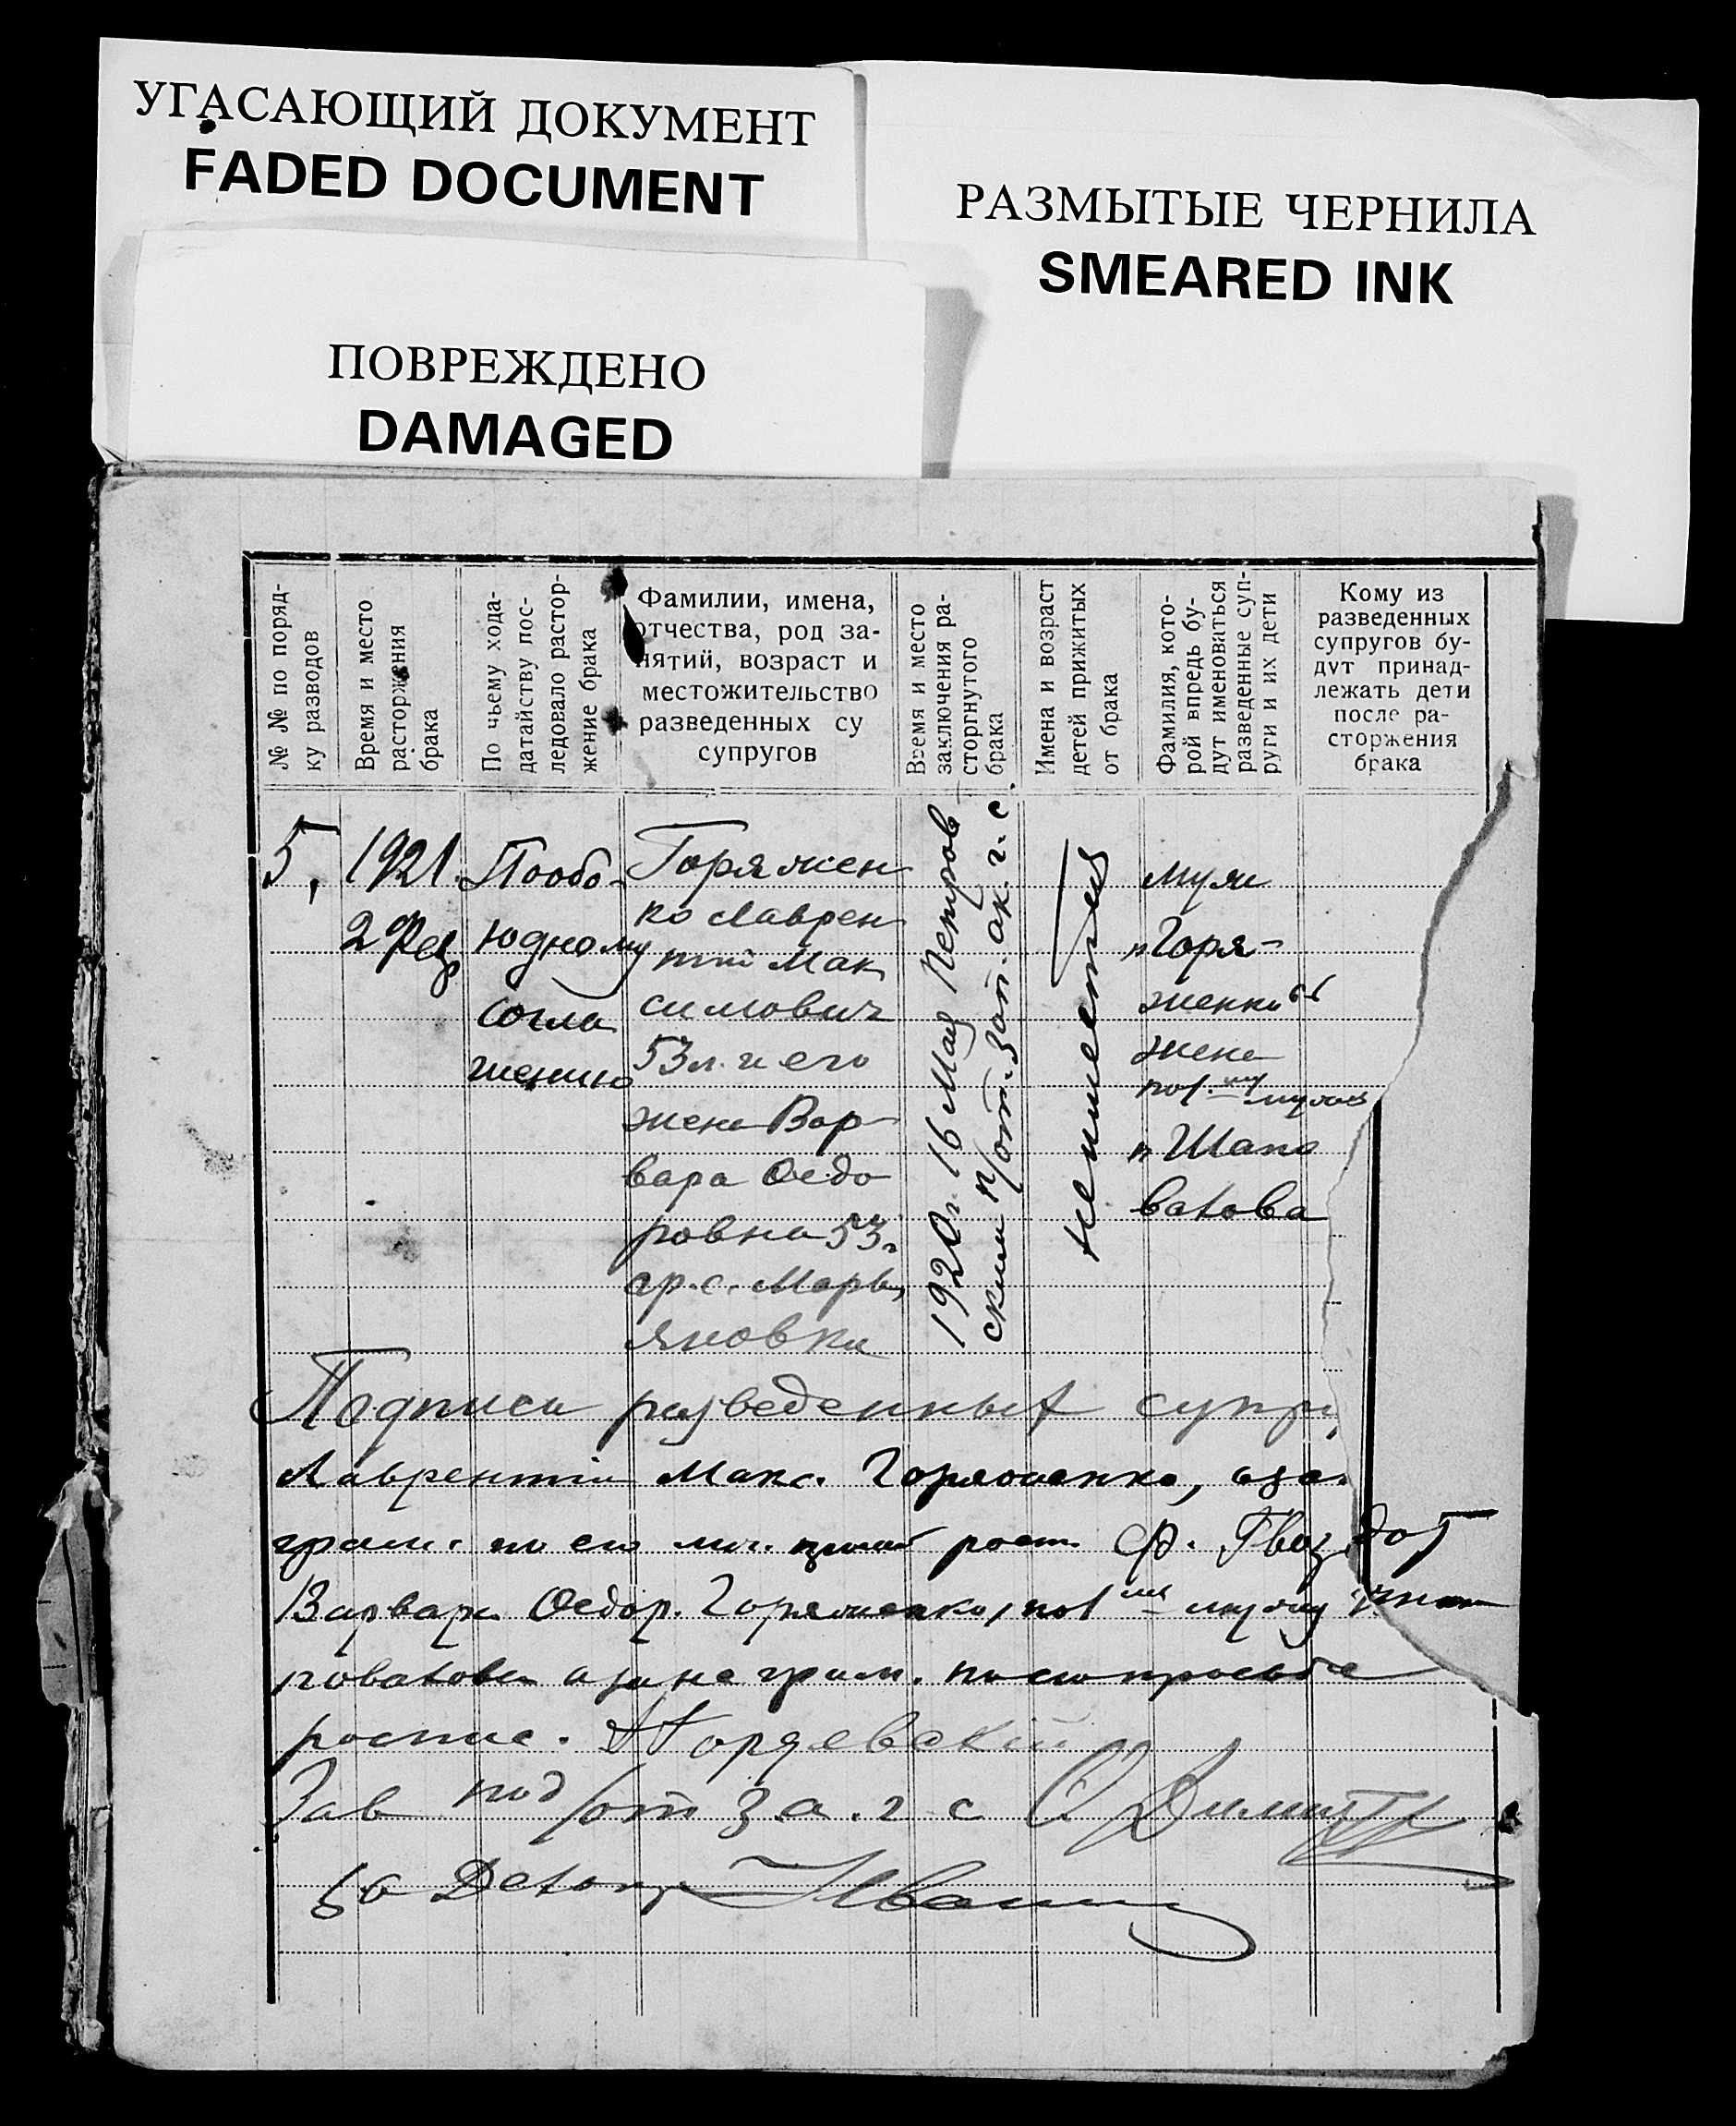 УГАСАЮЩИЙ ДОКУМЕНТ
FADED DOCUMENT
РАЗМЫТЫЕ ЧЕРНИЛА
SMEARED INK
ПОВРЕЖДЕНО
DAMAGED
№ № по поряд-
ку разводов
Время и место
расторжения
брака
По чьему хода-
датайству пос-
ледовало растор-
жение брака
Фамилии, имена,
отчества, род за-
нятий, возраст и
местожительство
разведенных су
супругов
Время и место
заключения ра-
сторгнутого
брака
Имена и возраст
детей прижитых
от брака
Фамилия, кото-
рой впредь бу-
дут именоваться
разведенные суп-
руги и их дети
Кому из
разведенных
супругов бу-
дут принад-
лежать дети
после ра-
сторжения
брака
5,
1921.
2 Фев
Пообо-
юдному
согла
шению
Горяжен
ко Лаврен
тий Мак
симович
53 л. и его
жена Вар-
вара Федо
ровна 53 г
гр. с. Марь
яновки
1920 г. 16 Мая Петров
ским п/отт. Зап. ак. г. с.
не имеется
муж
"Горя-
женко"
жена
по 1му мужу
"Шапо
валова
Подписи разведенных супр
Лаврентий Макс. Горяженко, а за
грам. по его лич. рост. Ф. Гвоз
Варвара Федор. Горяженко, по 1му мужу
повалова а за не грам. по ею просьбе
роспис.
Зав под/отт з а. г с